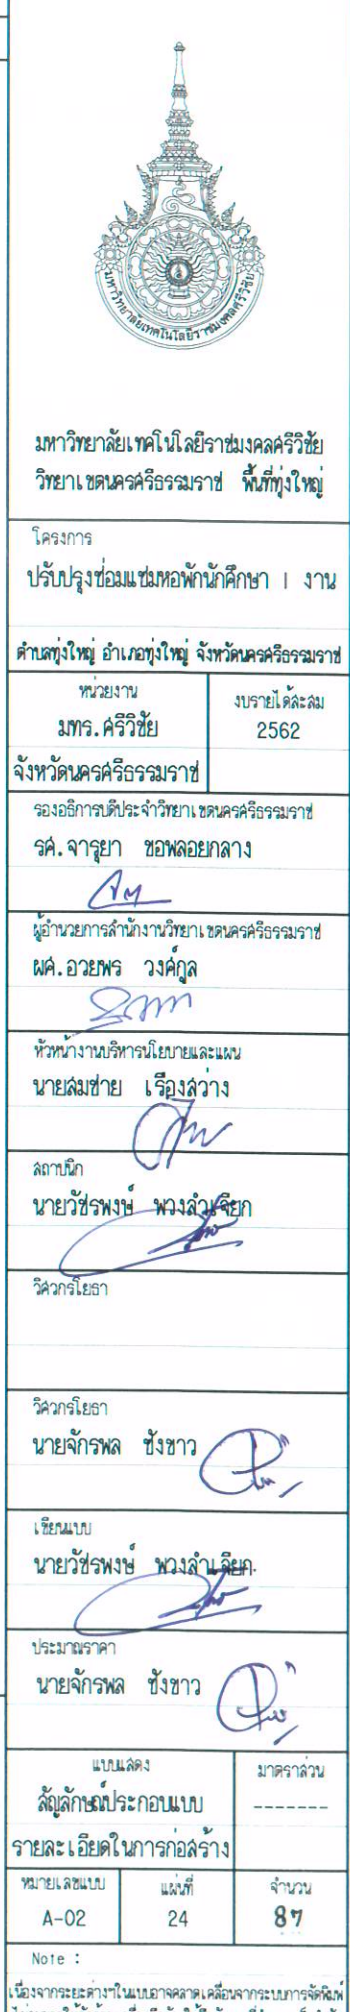 มหาวิทยาลัยเทคโนโลยีราชมงคลศรีวิชัย
มหาวิทยาลัยเทคโนโลยีราชมงคลศรีวิชัย
วิทยาเขตนครศรีธรรมราช พื้นที่ทุ่งใหญ่
โครงการ
ปรับปรุงซ่อมแซมหอพักนักศึกษา 1 งาน
ตำบลทุ่งใหญ่ อำเภอทุ่งใหญ่ จังหวัดนครศรีธรรมราช
หน่วยงาน
มทร.ศรีวิชัย
จังหวัดนครศรีธรรมราช
งบรายได้สะสม
2562
รองอธิการบดีประจำวิทยาเขตนครศรีธรรมราช
รศ.จารุยา ขอพลอยกลาง
ผู้อำนวยการสำนักงานวิทยาเขตนครศรีธรรมราช
ผศ.อวยพร วงศ์กูล
หัวหน้างานบริหารนโยบายและแผน
นายสมชาย เรืองสว่าง
สถาปนิก
นายวัชรพงษ์ พวงลำเจียก
วิศวกรโยธา
วิศวกรโยธา
นายจักรพล ชังขาว
เขียนแบบ
นายวัชรพงษ์ พวงลำเจียก
ประมาณราคา
นายจักรพล ชังขาว
แบบแสดง
สัญลักษณ์ประกอบแบบ
รายละเอียดในการก่อสร้าง
มาตราส่วน
-------
หมายเลขแบบ
A-02
แผ่นที่
24
จำนวน
87
Note :
เนื่องจากระยะต่างๆในแบบอาจคลาดเคลื่อนจากระบบการจัดพิมพ์